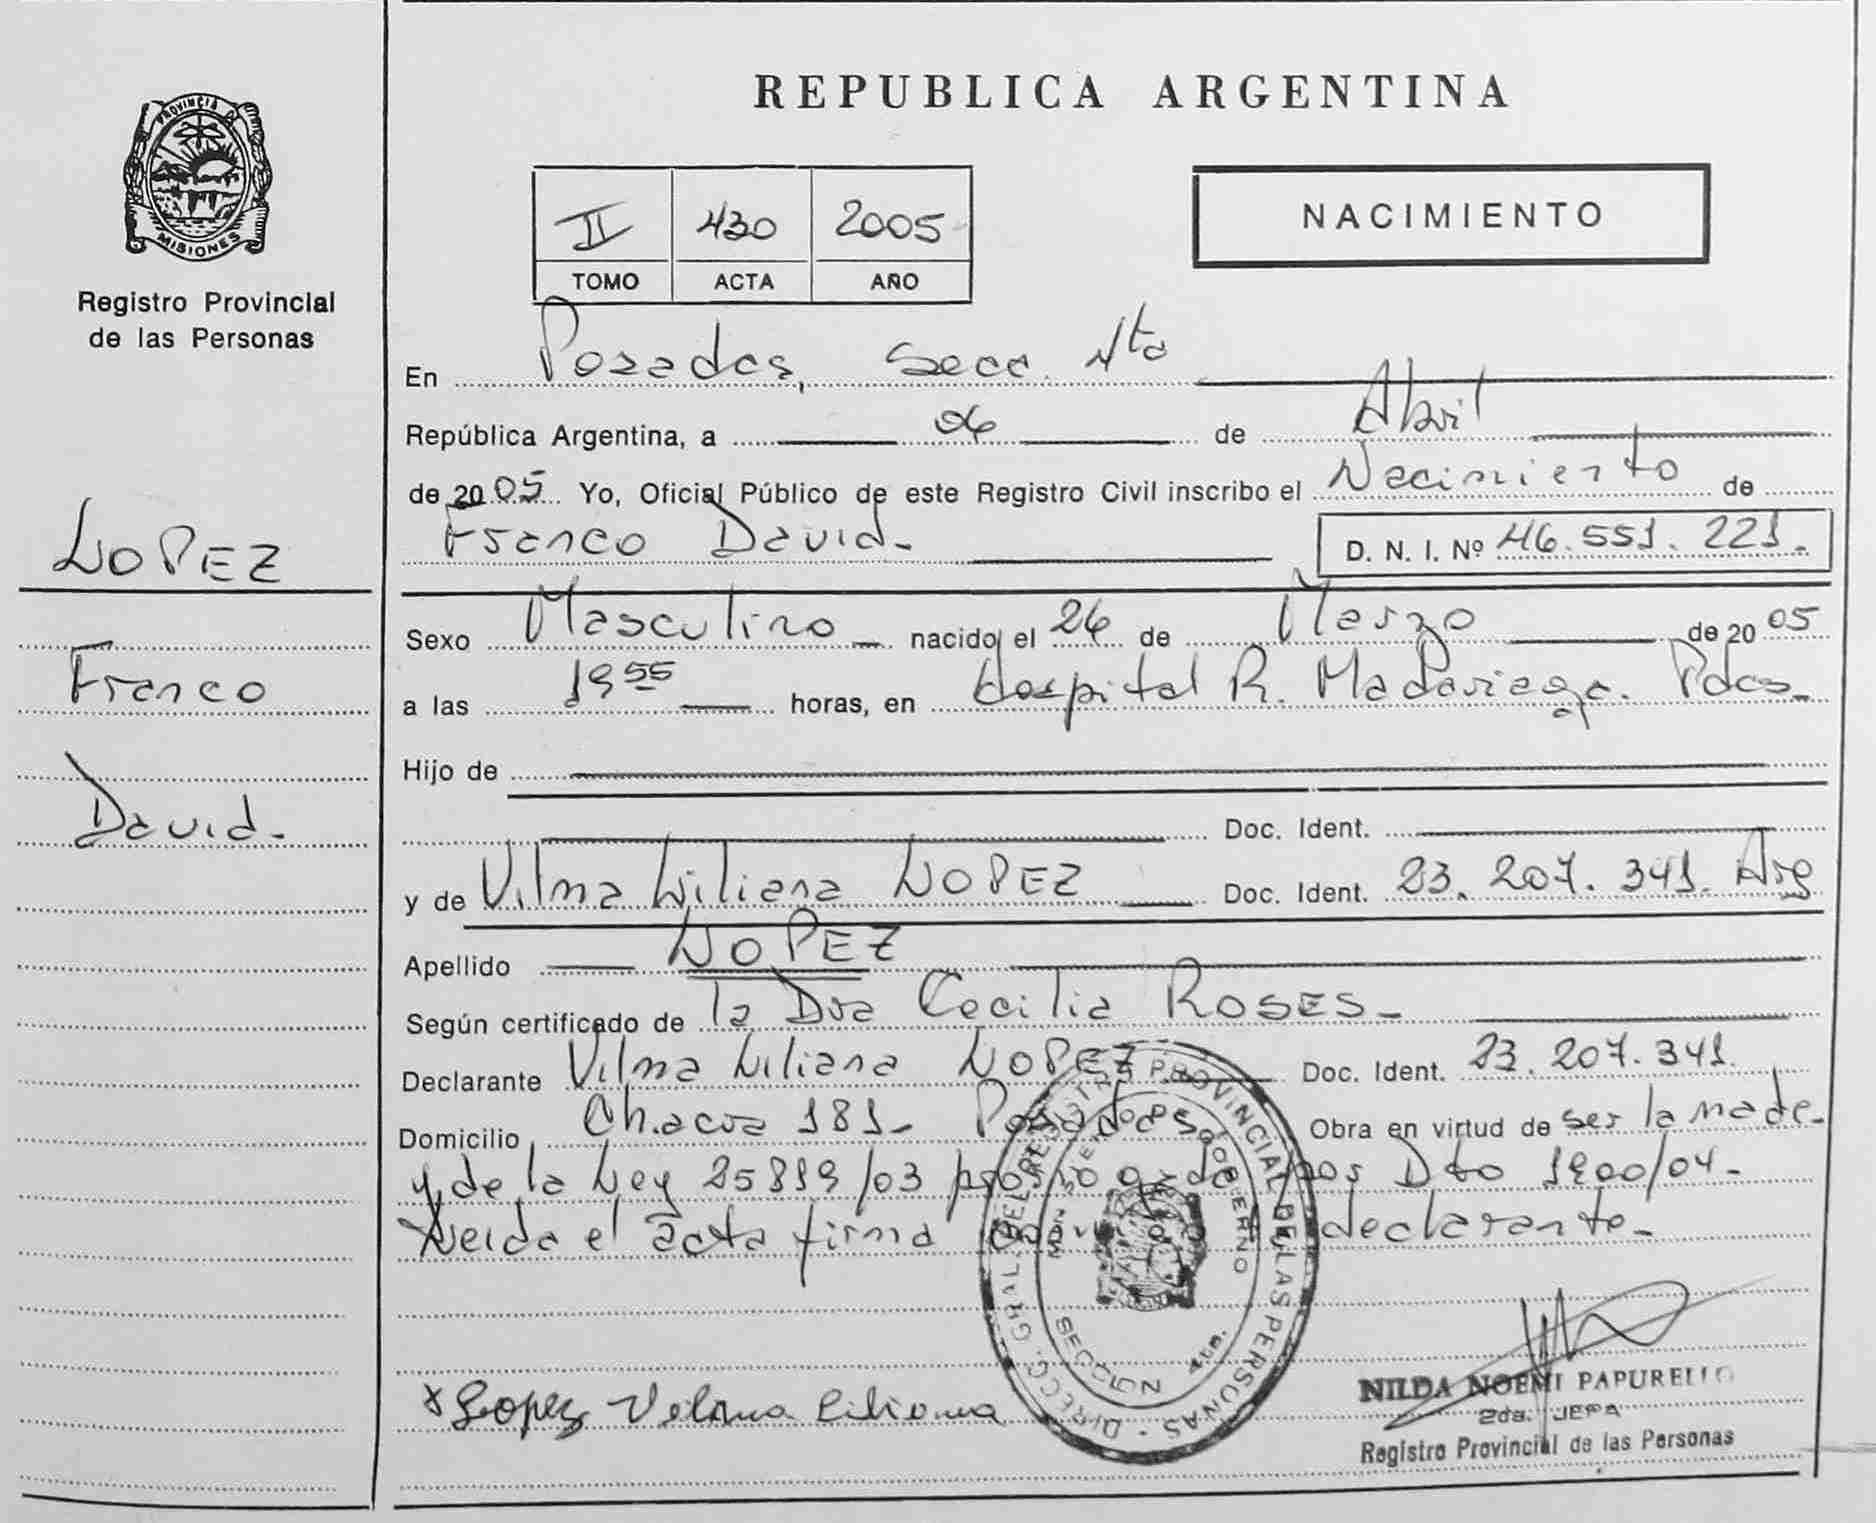 PROVINCIA DE
MISIONES
Registro Provincial
de las Personas
LOPEZ
Franco
David.-
REPUBLICA ARGENTINA
II 430 2005
TOMO ACTA AÑO
NACIMIENTO
En Posadas, Secc. 4ta
República Argentina, a 06 de Abril
de 2005 Yo, Oficial Público de este Registro Civil inscribo el Nacimiento de
Franco David.- D. N. I. Nº 46.551.221.
Sexo Masculino nacido el 26 de Marzo de 2005
a las 19 55 horas, en Hospital R. Madariaga. Pdas.
Hijo de
Doc. Ident.
y de Vilma Liliana LOPEZ Doc. Ident. 23.207.341. Arg
Apellido LOPEZ
Según certificado de la Dra Cecilia ROSES.-
Declarante Vilma Liliana LOPEZ Doc. Ident. 23.207.341.
Domicilio Chacra 181- Posadas Obra en virtud de ser la madre.-
y de la Ley 25819/03 prorrogada por Dto 1900/04-
Leida el acta firma la declarante.-
DIRECC. GRAL. DEL REGISTRO PROVINCIAL DE LAS PERSONAS
GOBIERNO
SECCION 4ta.
x Lopez Vilma Liliana
NILDA NOEMI PAPURELLO
2da. JEFA
Registro Provincial de las Personas